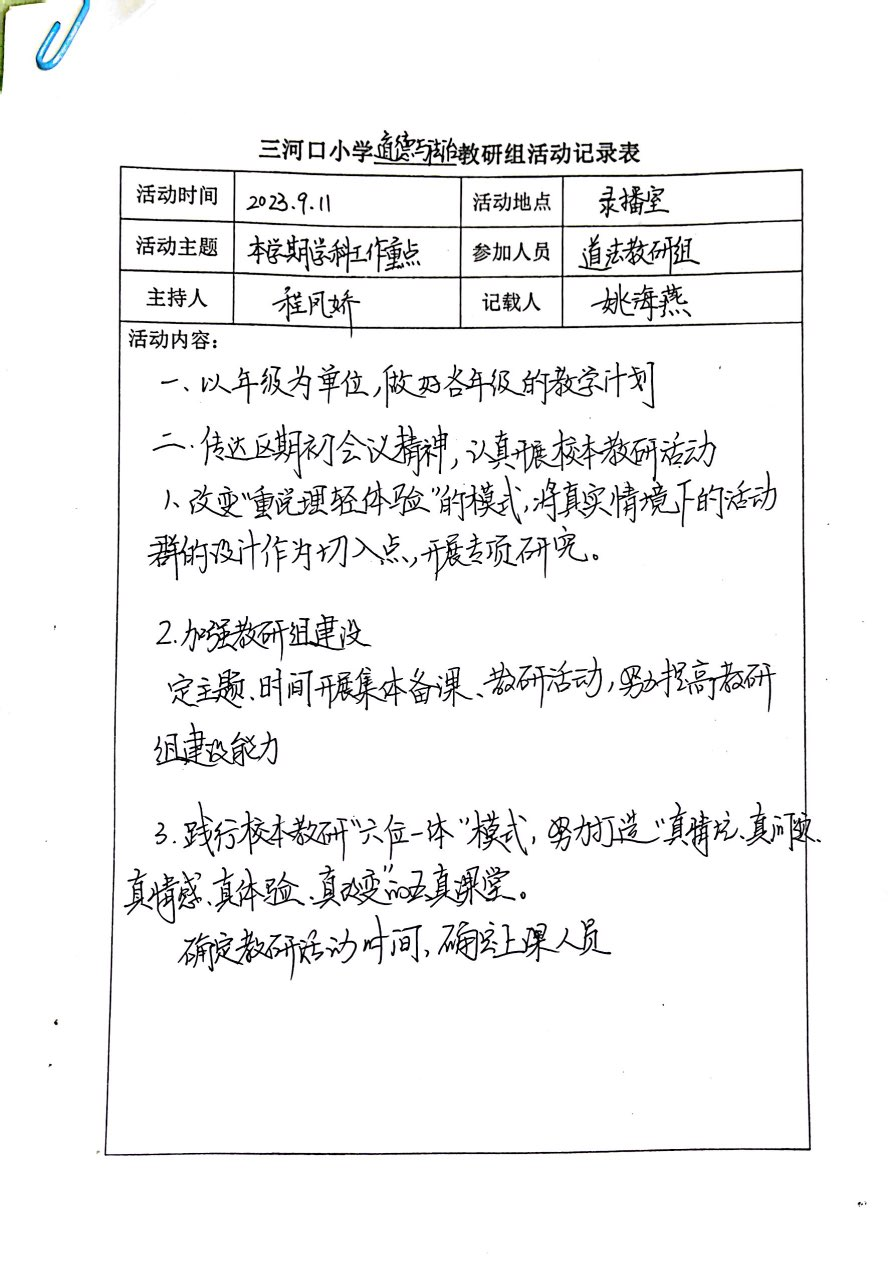 三河口小学道德与法治教研组活动记录表
活动时间 2023.9.11 活动地点 录播室
活动主题 本学期学科工作重点 参加人员 道法教研组
主持人 程凤娇 记载人 姚海燕
活动内容：
一、以年级为单位，做好各年级的教学计划
二、传达区期初会议精神，认真开展校本教研活动
1、改变“重说理轻体验”的模式，将真实情境下的活动
群的设计作为切入点，开展专项研究。
2.加强教研组建设
定主题、时间开展集体备课、教研活动，努力提高教研
组建设能力
3.践行校本教研“六位一体”模式，努力打造“真情境、真问题、
真情感、真体验、真改变”的五真课堂。
确定教研活动时间，确定上课人员